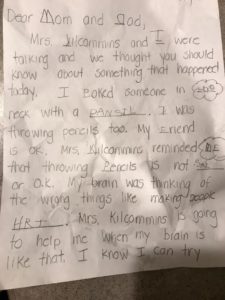 Dear Mom and Dad,
Mrs. Kilcommins and I were
talking and we thought you should
know about something that happened
today. I poked someone in the
neck with a pensil. I was
throwing pencils too. My friend
is ok. Mrs. Kilcommins reminded me
that throwing pencils is not
or O.K. My brain was thinking of
the wrong things like making people
HRT. Mrs. Kilcommins is going
to help me when my brain is
like that. I know I can try